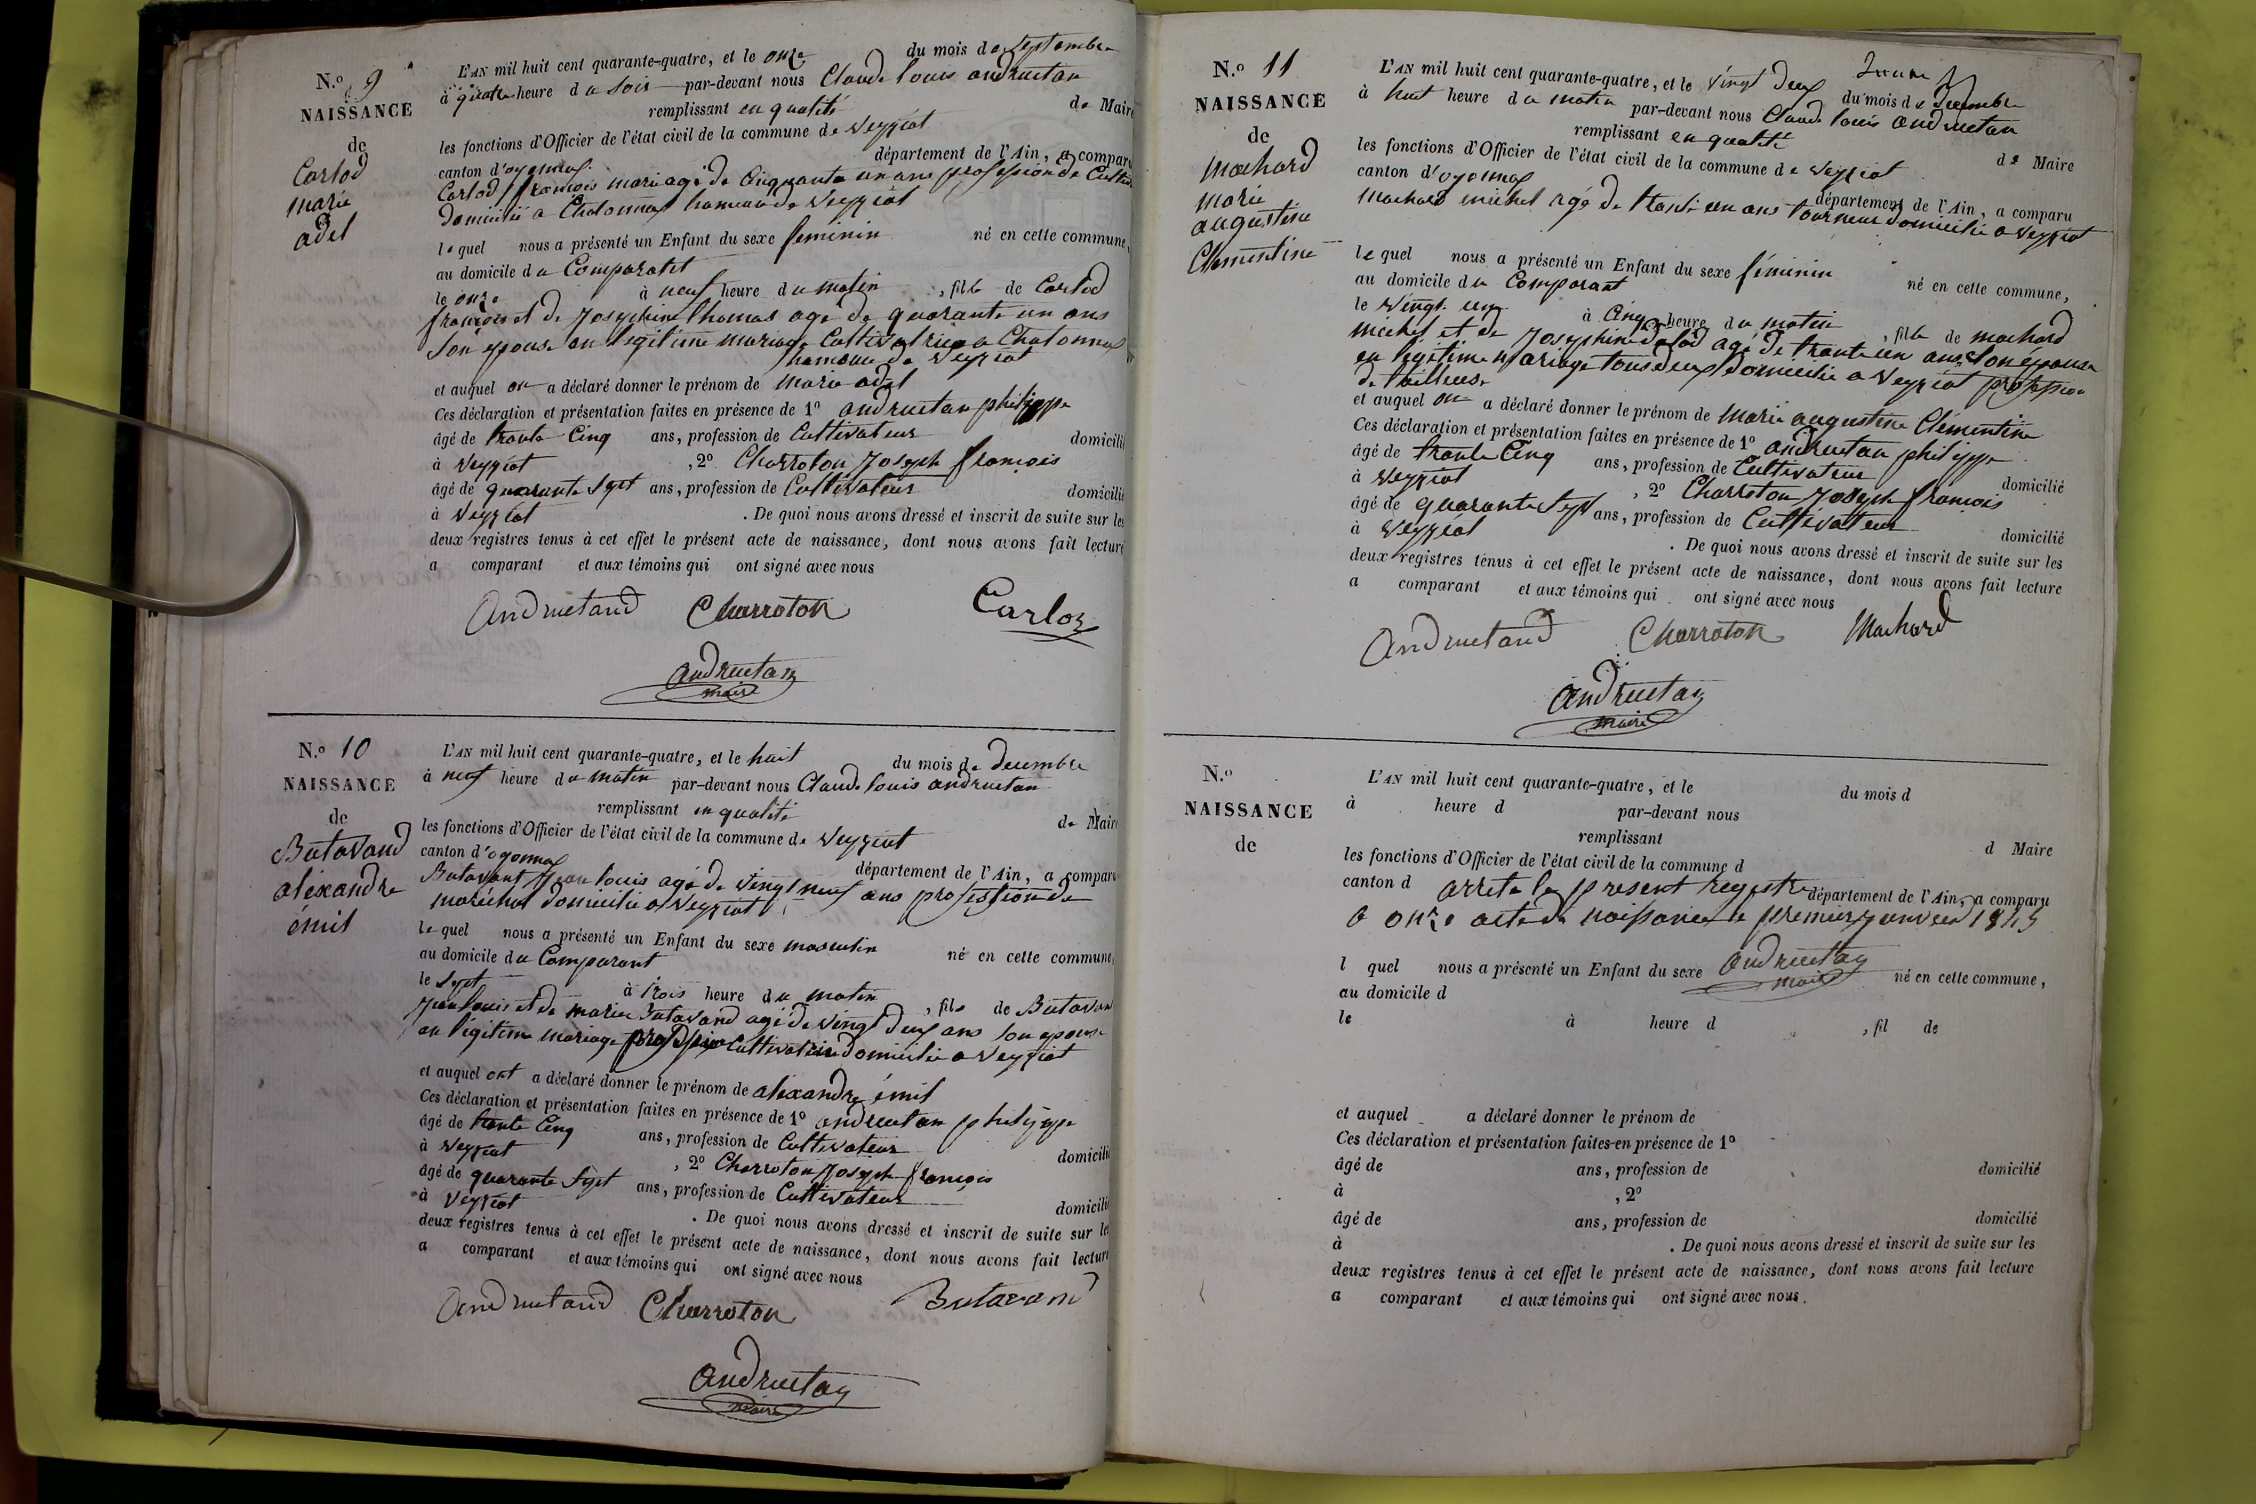 N.o 9
NAISSANCE
de
Carlod
marie
adel
L'AN mil huit cent quarante-quatre, et le onze du mois de septembre
à quatre heure du soir par-devant nous Claude louis andruetan
remplissant en qualité de Maire
les fonctions d'Officier de l'état civil de la commune de veyziat
canton d'oyonnax département de l'Ain, a comparu
Carlod françois marie agé de Cinquante un ans profession de Cultiv
domicilié a Chatonnax hameau de veyziat
lequel nous a présenté un Enfant du sexe feminin né en cette commune,
au domicile du Comparatet
le onze à neuf heure du matin, fille de Carlod
françois et de Josephine thomas agé de quarante un ans
son epouse en legitime mariage Cultivatrice a Chatonnax
hameau de veyziat
et auquel on a déclaré donner le prénom de marie adel
Ces déclaration et présentation faites en présence de 1o andruetan philippe
âgé de trente Cinq ans, profession de Cultivateur domicilié
à veyziat, 2o Charroton Joseph françois
âgé de quarante sept ans, profession de Cultivateur domicilié
à veyziat. De quoi nous avons dressé et inscrit de suite sur les
deux registres tenus à cet effet le présent acte de naissance, dont nous avons fait lecture
a comparant et aux témoins qui ont signé avec nous
Andruetand Charroton Carloz
andruetan
maire
N.o 10
NAISSANCE
de
Butavand
aléxandre
émil
L'AN mil huit cent quarante-quatre, et le huit du mois de decembre
à neuf heure du matin par-devant nous Claude louis andruetan
remplissant en qualité de Maire
les fonctions d'Officier de l'état civil de la commune de veyziat
canton d'oyonnax département de l'Ain, a comparu
Butavant Jean louis agé de vingt neuf ans profession de
maréchal domicilié a veyziat
lequel nous a présenté un Enfant du sexe masculin né en cette commune,
au domicile du Comparant
le sept à trois heure du matin, fils de Butavan
Jean louis et de marie Butavand agé de vingt deux ans son epouse
en légitime mariage profession Cultivatrice domicilié a veyziat
et auquel ont a déclaré donner le prénom de aléxandre émil
Ces déclaration et présentation faites en présence de 1o andruetan philippe
âgé de trente Cinq ans, profession de Cultivateur domicilié
à veyziat, 2o Charroton Joseph françois
âgé de quarante sept ans, profession de Cultivateur domicilié
à veyziat. De quoi nous avons dressé et inscrit de suite sur les
deux registres tenus à cet effet le présent acte de naissance, dont nous avons fait lecture
a comparant et aux témoins qui ont signé avec nous
Andruetand Charroton Butavand
andruetan
maire
N.o 11
NAISSANCE
de
Machard
marie
augustine
Clementine
L'AN mil huit cent quarante-quatre, et le vingt deux du mois de decembre
à huit heure du matin par-devant nous Claude louis andruetan
remplissant en qualité de Maire
les fonctions d'Officier de l'état civil de la commune de veyziat
canton d'oyonnax département de l'Ain, a comparu
machard michel agé de trente un ans tourneur domicilié a veyziat
lequel nous a présenté un Enfant du sexe féminin né en cette commune,
au domicile du Comparant
le vingt un à Cinq heure du matin, fille de machard
michel et de Josephine agé de trente un ans son épouse
en légitime mariage tous deux domicilié a veyziat profession
de tailleuse
et auquel on a déclaré donner le prénom de marie augustine Clémentine
Ces déclaration et présentation faites en présence de 1o andruetan philippe
âgé de trente Cinq ans, profession de Cultivateur domicilié
à veyziat, 2o Charroton Joseph françois
âgé de quarante sept ans, profession de Cultivateur domicilié
à veyziat. De quoi nous avons dressé et inscrit de suite sur les
deux registres tenus à cet effet le présent acte de naissance, dont nous avons fait lecture
a comparant et aux témoins qui ont signé avec nous
Andruetand Charroton Machard
andruetan
maire
N.o
NAISSANCE
de
L'AN mil huit cent quarante-quatre, et le du mois d
à heure d par-devant nous
remplissant d Maire
les fonctions d'Officier de l'état civil de la commune d
canton d département de l'Ain, a comparu
arrete le present registre
a onze acte de naissance le premier janvier 1845
l quel nous a présenté un Enfant du sexe né en cette commune,
andruetan
maire
au domicile d
le à heure d, fil de
et auquel a déclaré donner le prénom de
Ces déclaration et présentation faites en présence de 1o
âgé de ans, profession de domicilié
à, 2o
âgé de ans, profession de domicilié
à. De quoi nous avons dressé et inscrit de suite sur les
deux registres tenus à cet effet le présent acte de naissance, dont nous avons fait lecture
a comparant et aux témoins qui ont signé avec nous.